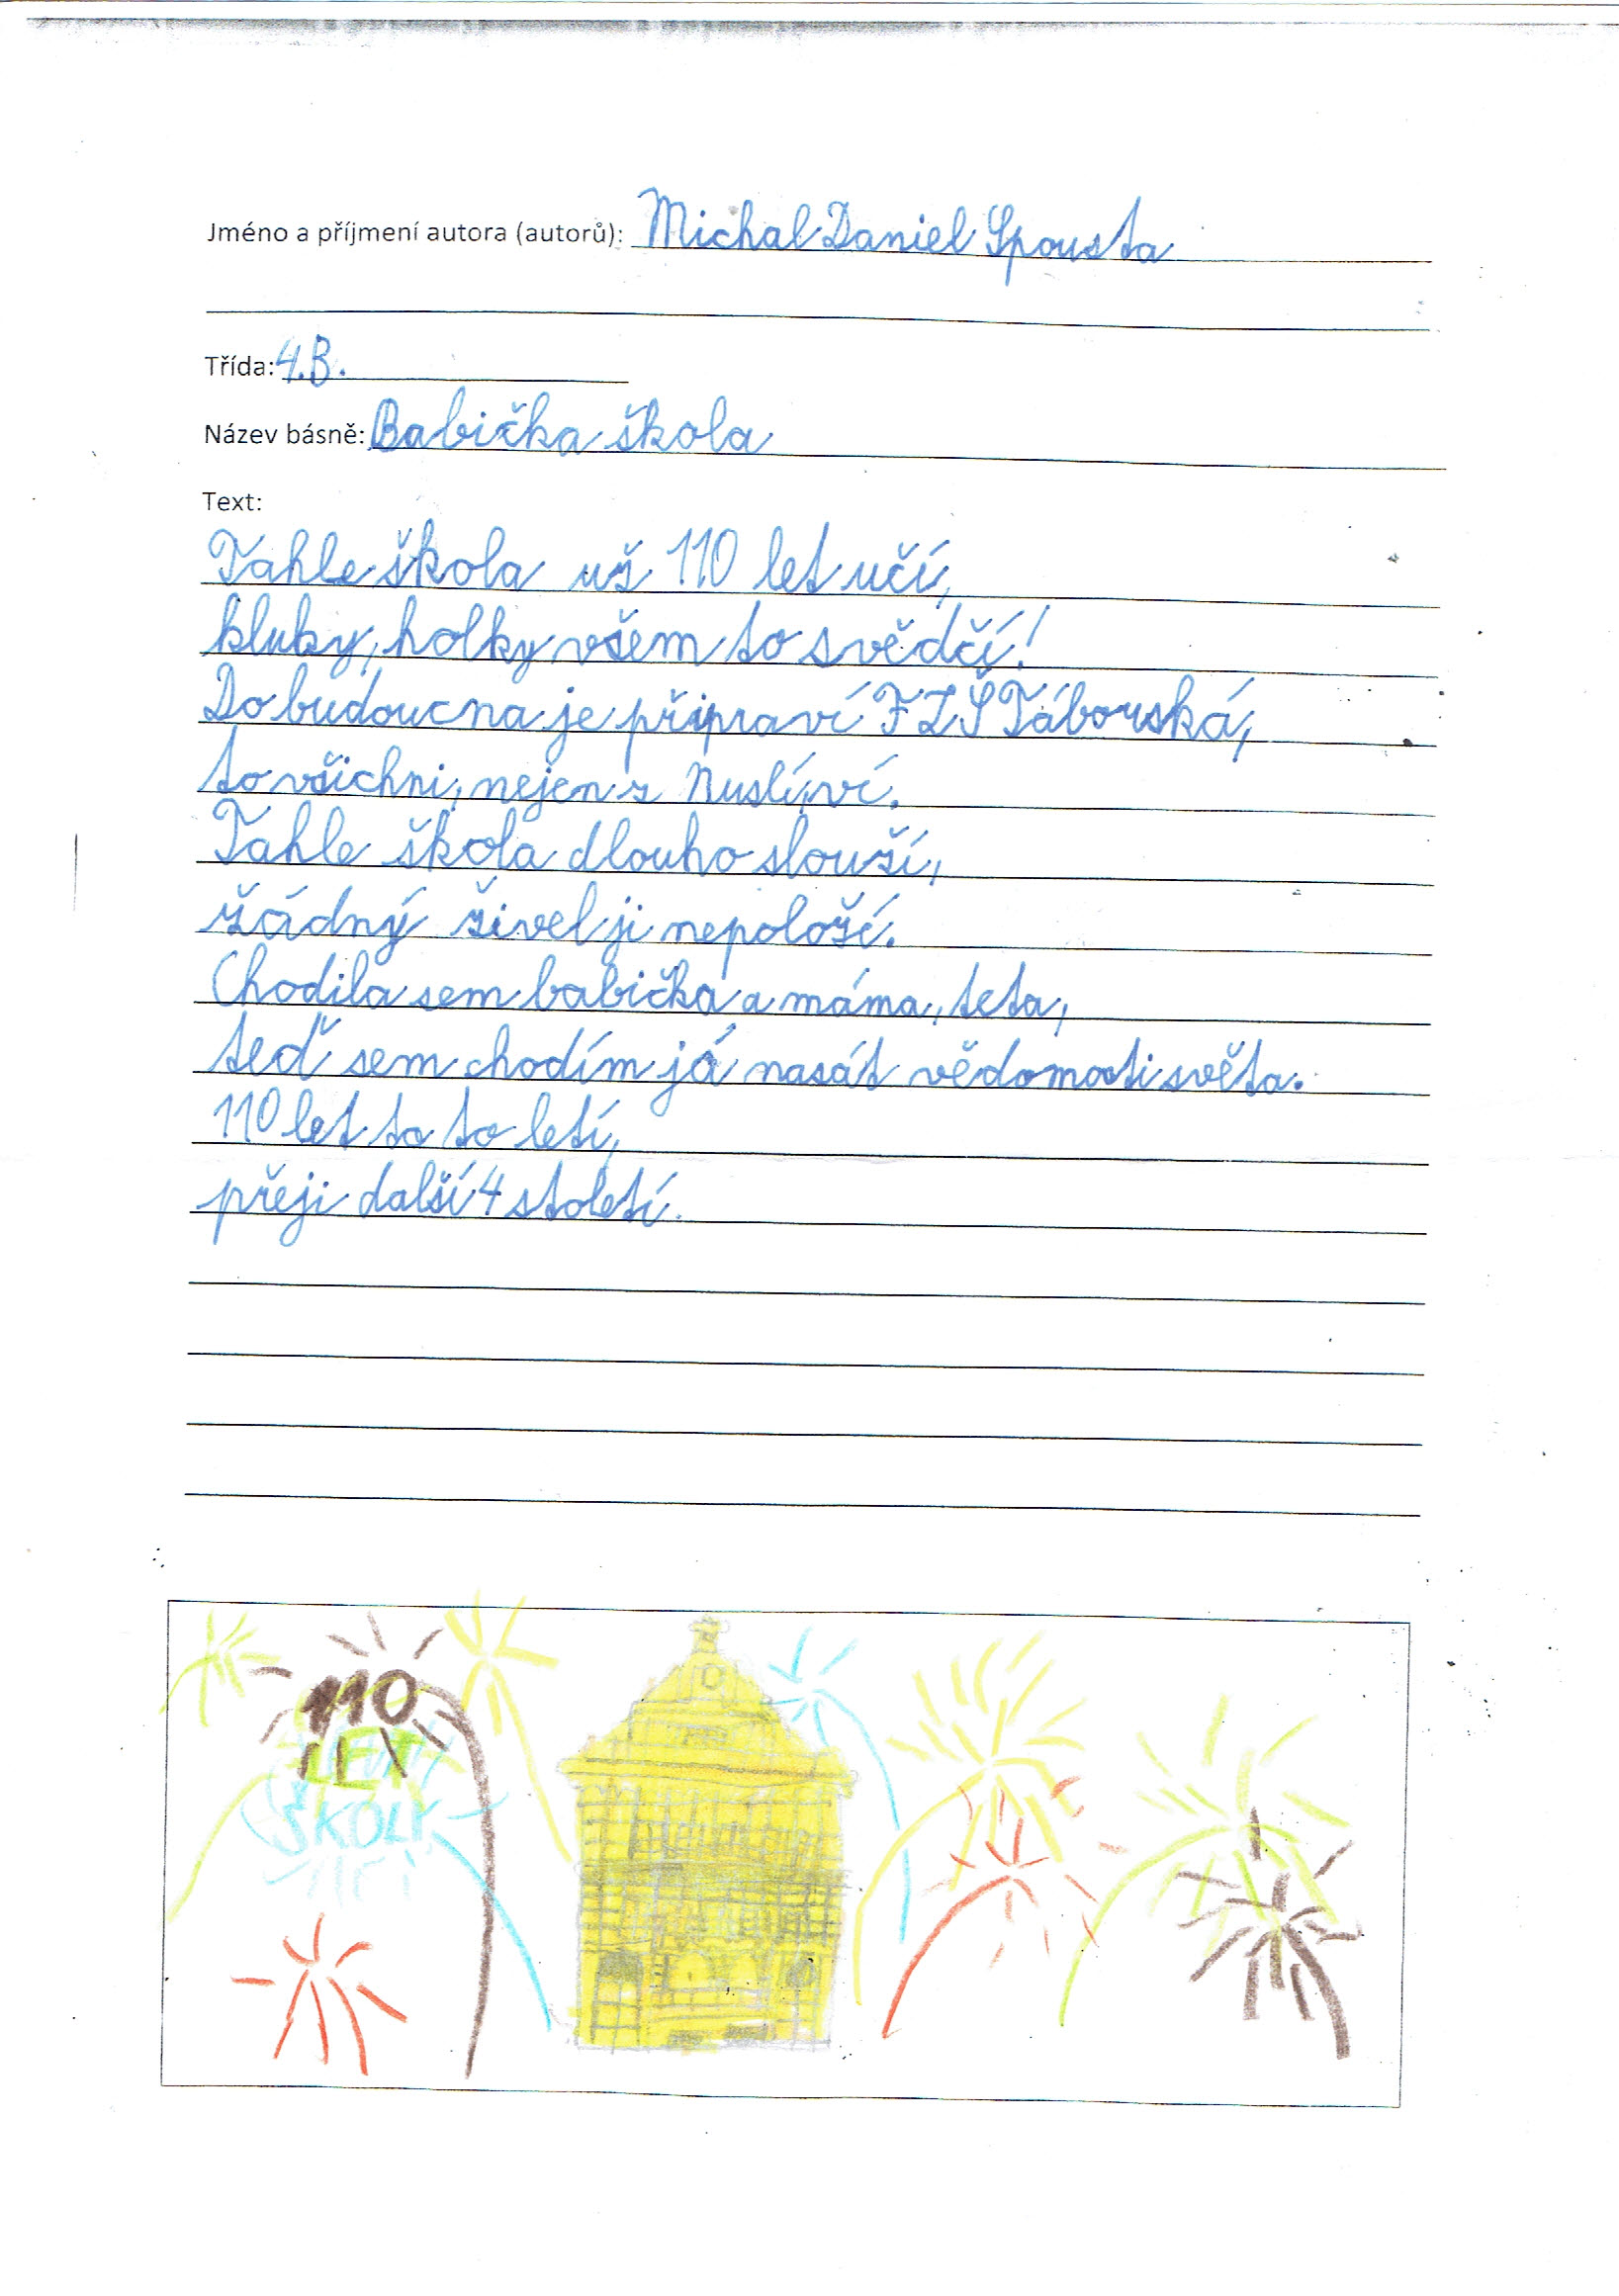 Jméno a příjmení autora (autorů): Michal Daniel Spousta
Třída: 4.B.
Název básně: Babička škola
Text:
Tahle škola už 110 let učí,
kluky, holky všem to svědčí!
Do budoucna je připraví FZŠ Táborská,
to všichni, nejen z Nuslí, ví.
Tahle škola dlouho slouží,
žádný živel ji nepoloží.
Chodila sem babička a máma, teta,
teď sem chodím já nasát vědomosti světa.
110 let to to letí,
přeji další 4 století.
110
LET
ŠKOLY